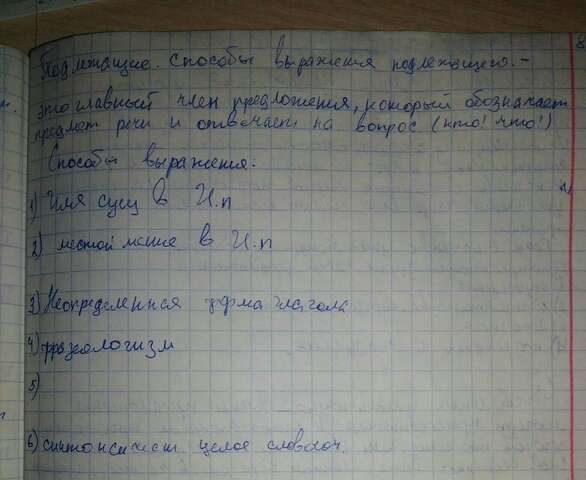 Подлежащие. Способы выражения подлежащего. -
это главный член предложения, который обозначает
предмет речи и отвечает на вопрос (кто! что!)
Способы выражения.
1) Имя сущ в И.п
2) местоимение в И.п
3) Неопределенная форма глагола
4) фразеологизм
5)
6) целое словосоч.